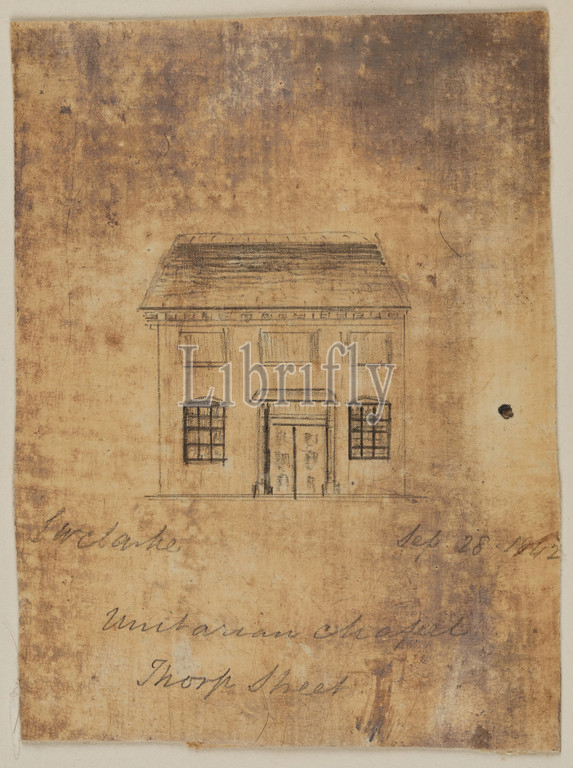 Librifly
J W Clarke Sep. 28 - 1842
Unitarian Chapel
Thorp Street